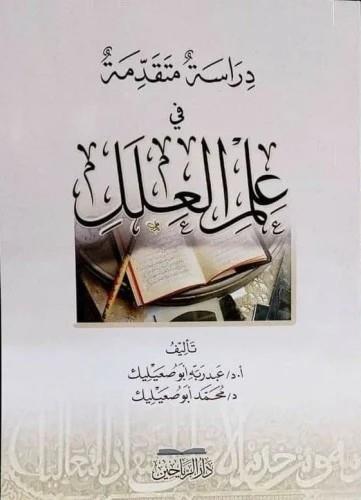 دِرَاسَةٌ مُتَقَدِّمَةٌ
في
عِلْمِ العِلَلِ
تَأْلِيفُ
أ.د/ عبدربه أبو صعيليك
د/ محمَّد أبو صعيليك
دار الرياحين